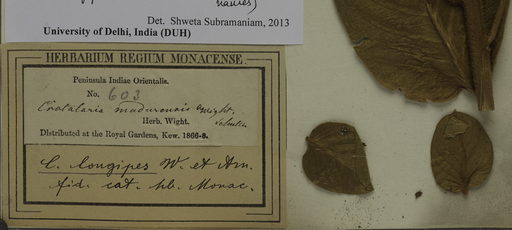 names)
Det. Shweta Subramaniam, 2013
University of Delhi, India (DUH)
HERBARIUM REGIUM MONACENSE.
Peninsula Indiae Orientalis.
No. 603
Crotalaria madurensis Wight.
Herb. Wight.
Distributed at the Royal Gardens, Kew. 1866-8.
C. longipes W. et Arn.
fid. cat. hb. Monac.